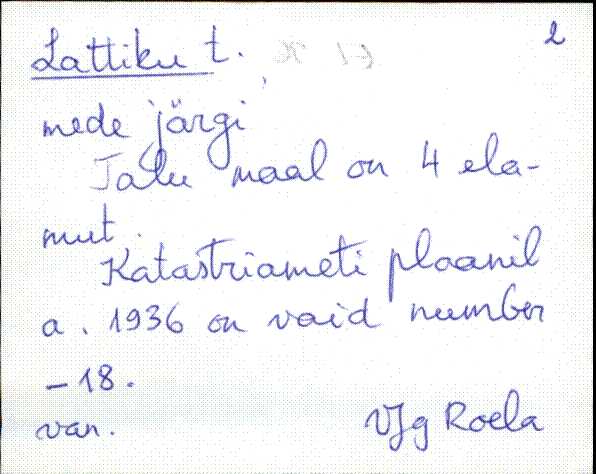 Lattiku t. 2
mede järgi
Talu maal on 4 ela-
mut.
Katastriameti plaanil
a. 1936 on vaid number
– 18.
van. VJg Roela